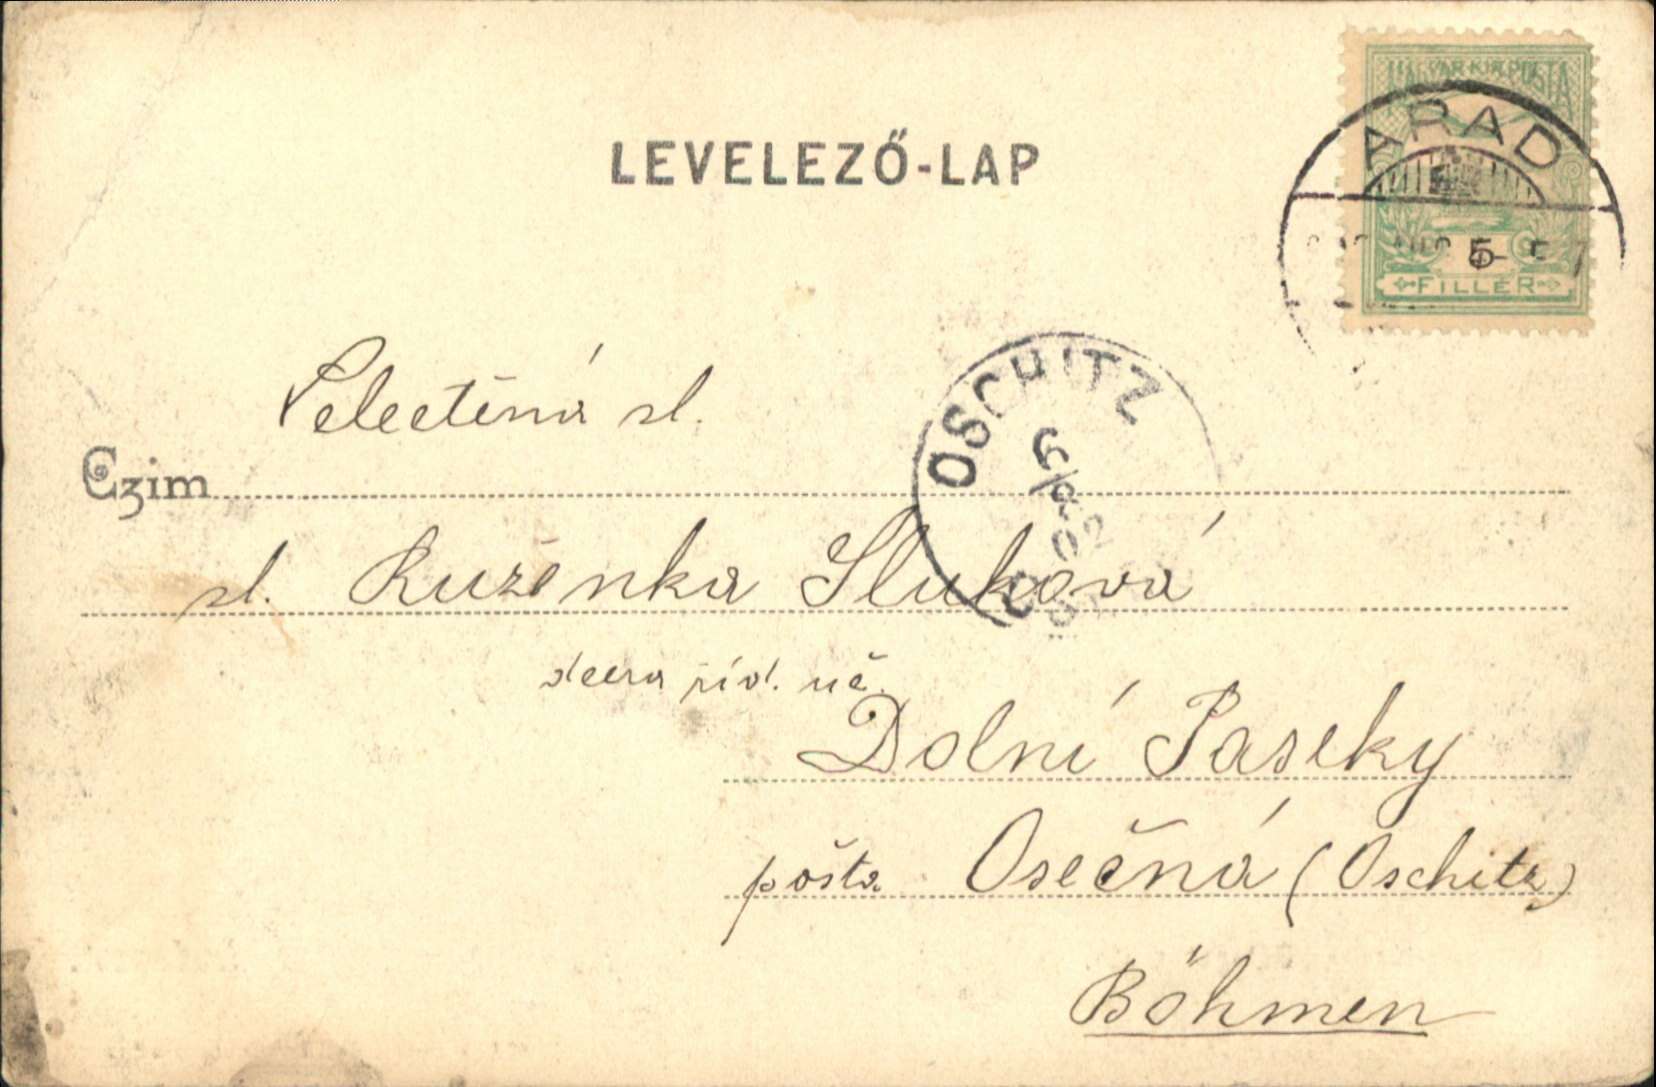 LEVELEZŐ-LAP
MAGYAR KIR. POSTA
ARAD
5
FILLÉR
OSCHITZ
Velectěná sl.
Czim
sl. Ruženka Sluková
dcera říd. uč.
Dolní Paseky
pošta Osečná (Oschitz)
Böhmen